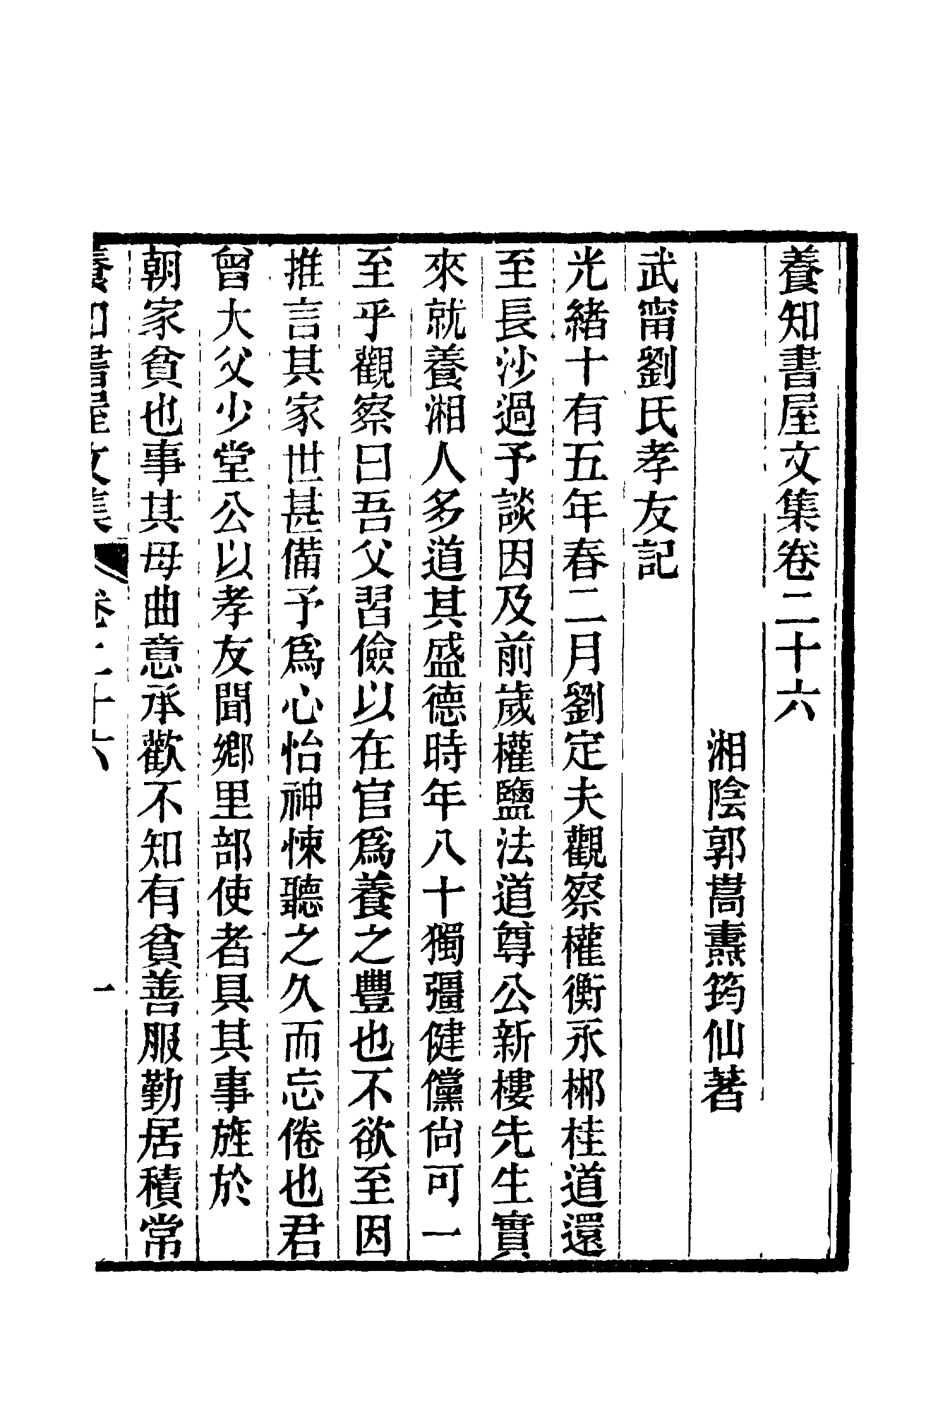 養知書屋文集卷二十六
湘陰郭嵩燾筠仙著
武甯劉氏孝友記
光緒十有五年春二月劉定夫觀察權衡永郴桂道還
至長沙過予談因及前歲權鹽法道尊公新樓先生實
來就養湘人多道其盛德時年八十獨彊健儻尙可一
至乎觀察曰吾父習儉以在官爲養之豐也不欲至因
推言其家世甚備予爲心怡神悚聽之久而忘倦也君
曾大父少堂公以孝友聞鄉里部使者具其事旌於
朝家貧也事其母曲意承歡不知有貧善服勤居積常
養知書屋文集 卷二十六 一